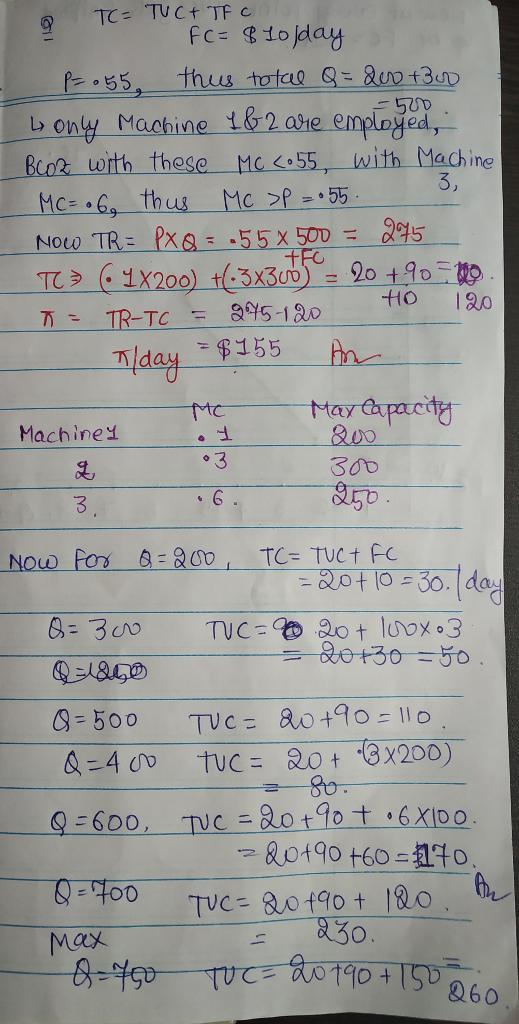 Q TC= TUC+ TFC
FC= $10/day
P= .55, thus total Q= 200+300
= 500
↳ only Machine 1&2 are employed,
Bcoz with these MC <.55, with Machine
3,
MC= .6, thus MC >P = .55.
Now TR= PXQ = .55 x 500 = 275
TC⇒ (.1X200) +(.3x300) +FC = 20 +90 =
+10 120
π = TR-TC = 275-120
π/day = $155 An
MC Max Capacity
Machine1 .1 200
2 .3 300
3. .6. 250.
Now For Q=200, TC= TUC+ FC
= 20+10 = 30./day
Q= 300 TUC= 20 + 100x.3
= 20+30 = 50.
Q=1250
Q=500 TUC= 20+90=110.
Q=400 TUC= 20+ .(3x200)
= 80.
Q=600, TUC =20+90 + .6X100.
= 20+90 +60=170.
An
Q=700 TUC= 20+90+ 120.
Max = 230.
Q=750 TUC= 20+90+150 =
260.